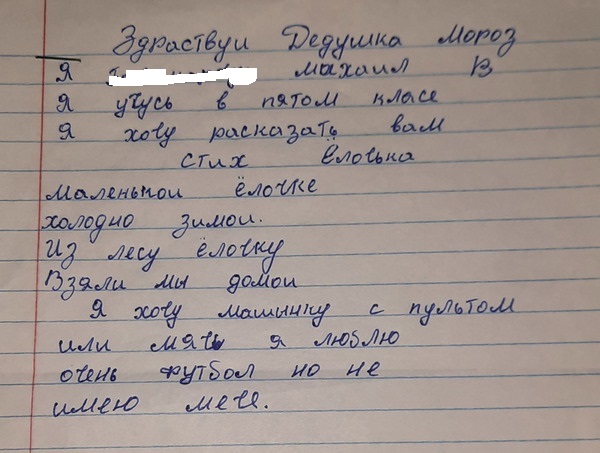 Здраствуи Дедушка Мороз
Я Махаил В
Я учусь в пятом класе
Я хочу расказать вам
стих Ёлочька
Маленькои ёлочке
холодно зимои.
Из лесу ёлочку
Взяли мы домои
Я хочу машынку с пультом
или мячь я люблю
очень футбол но не
имею мече.